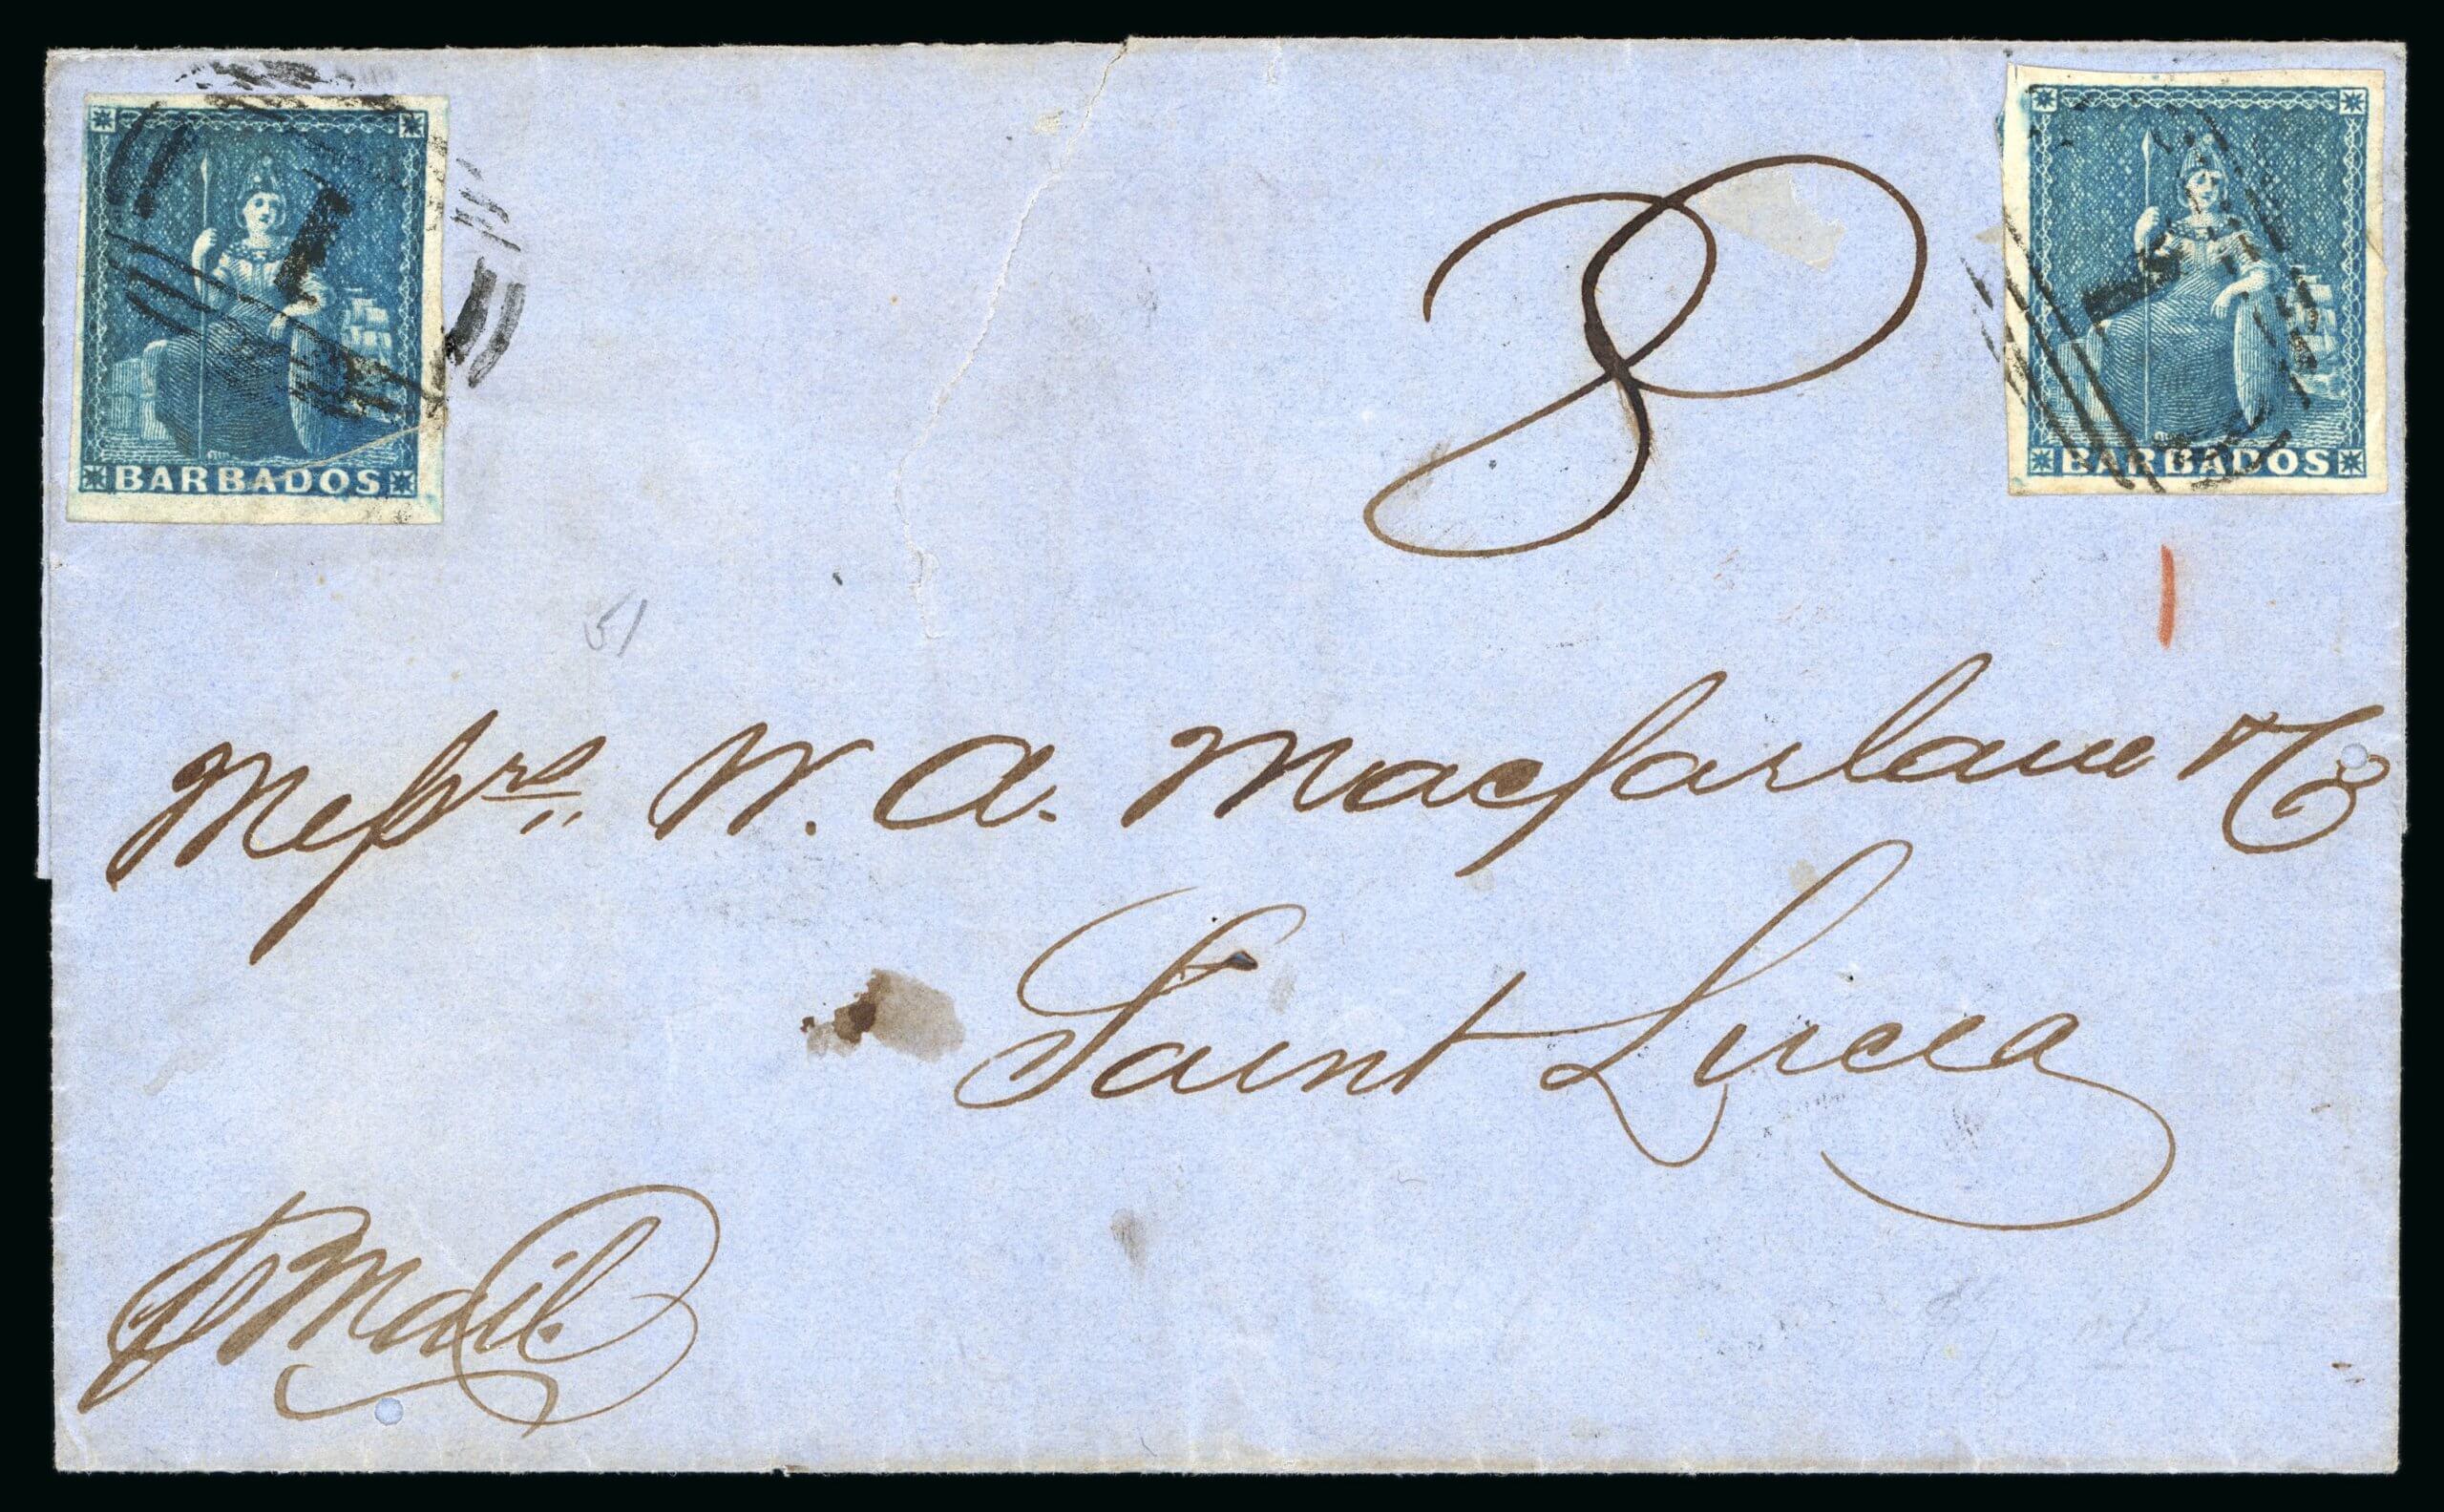 BARBADOS
1
BARBADOS
1
8
51
Messrs. W. A. Macfarlane & Co
Saint Lucia
P Mail